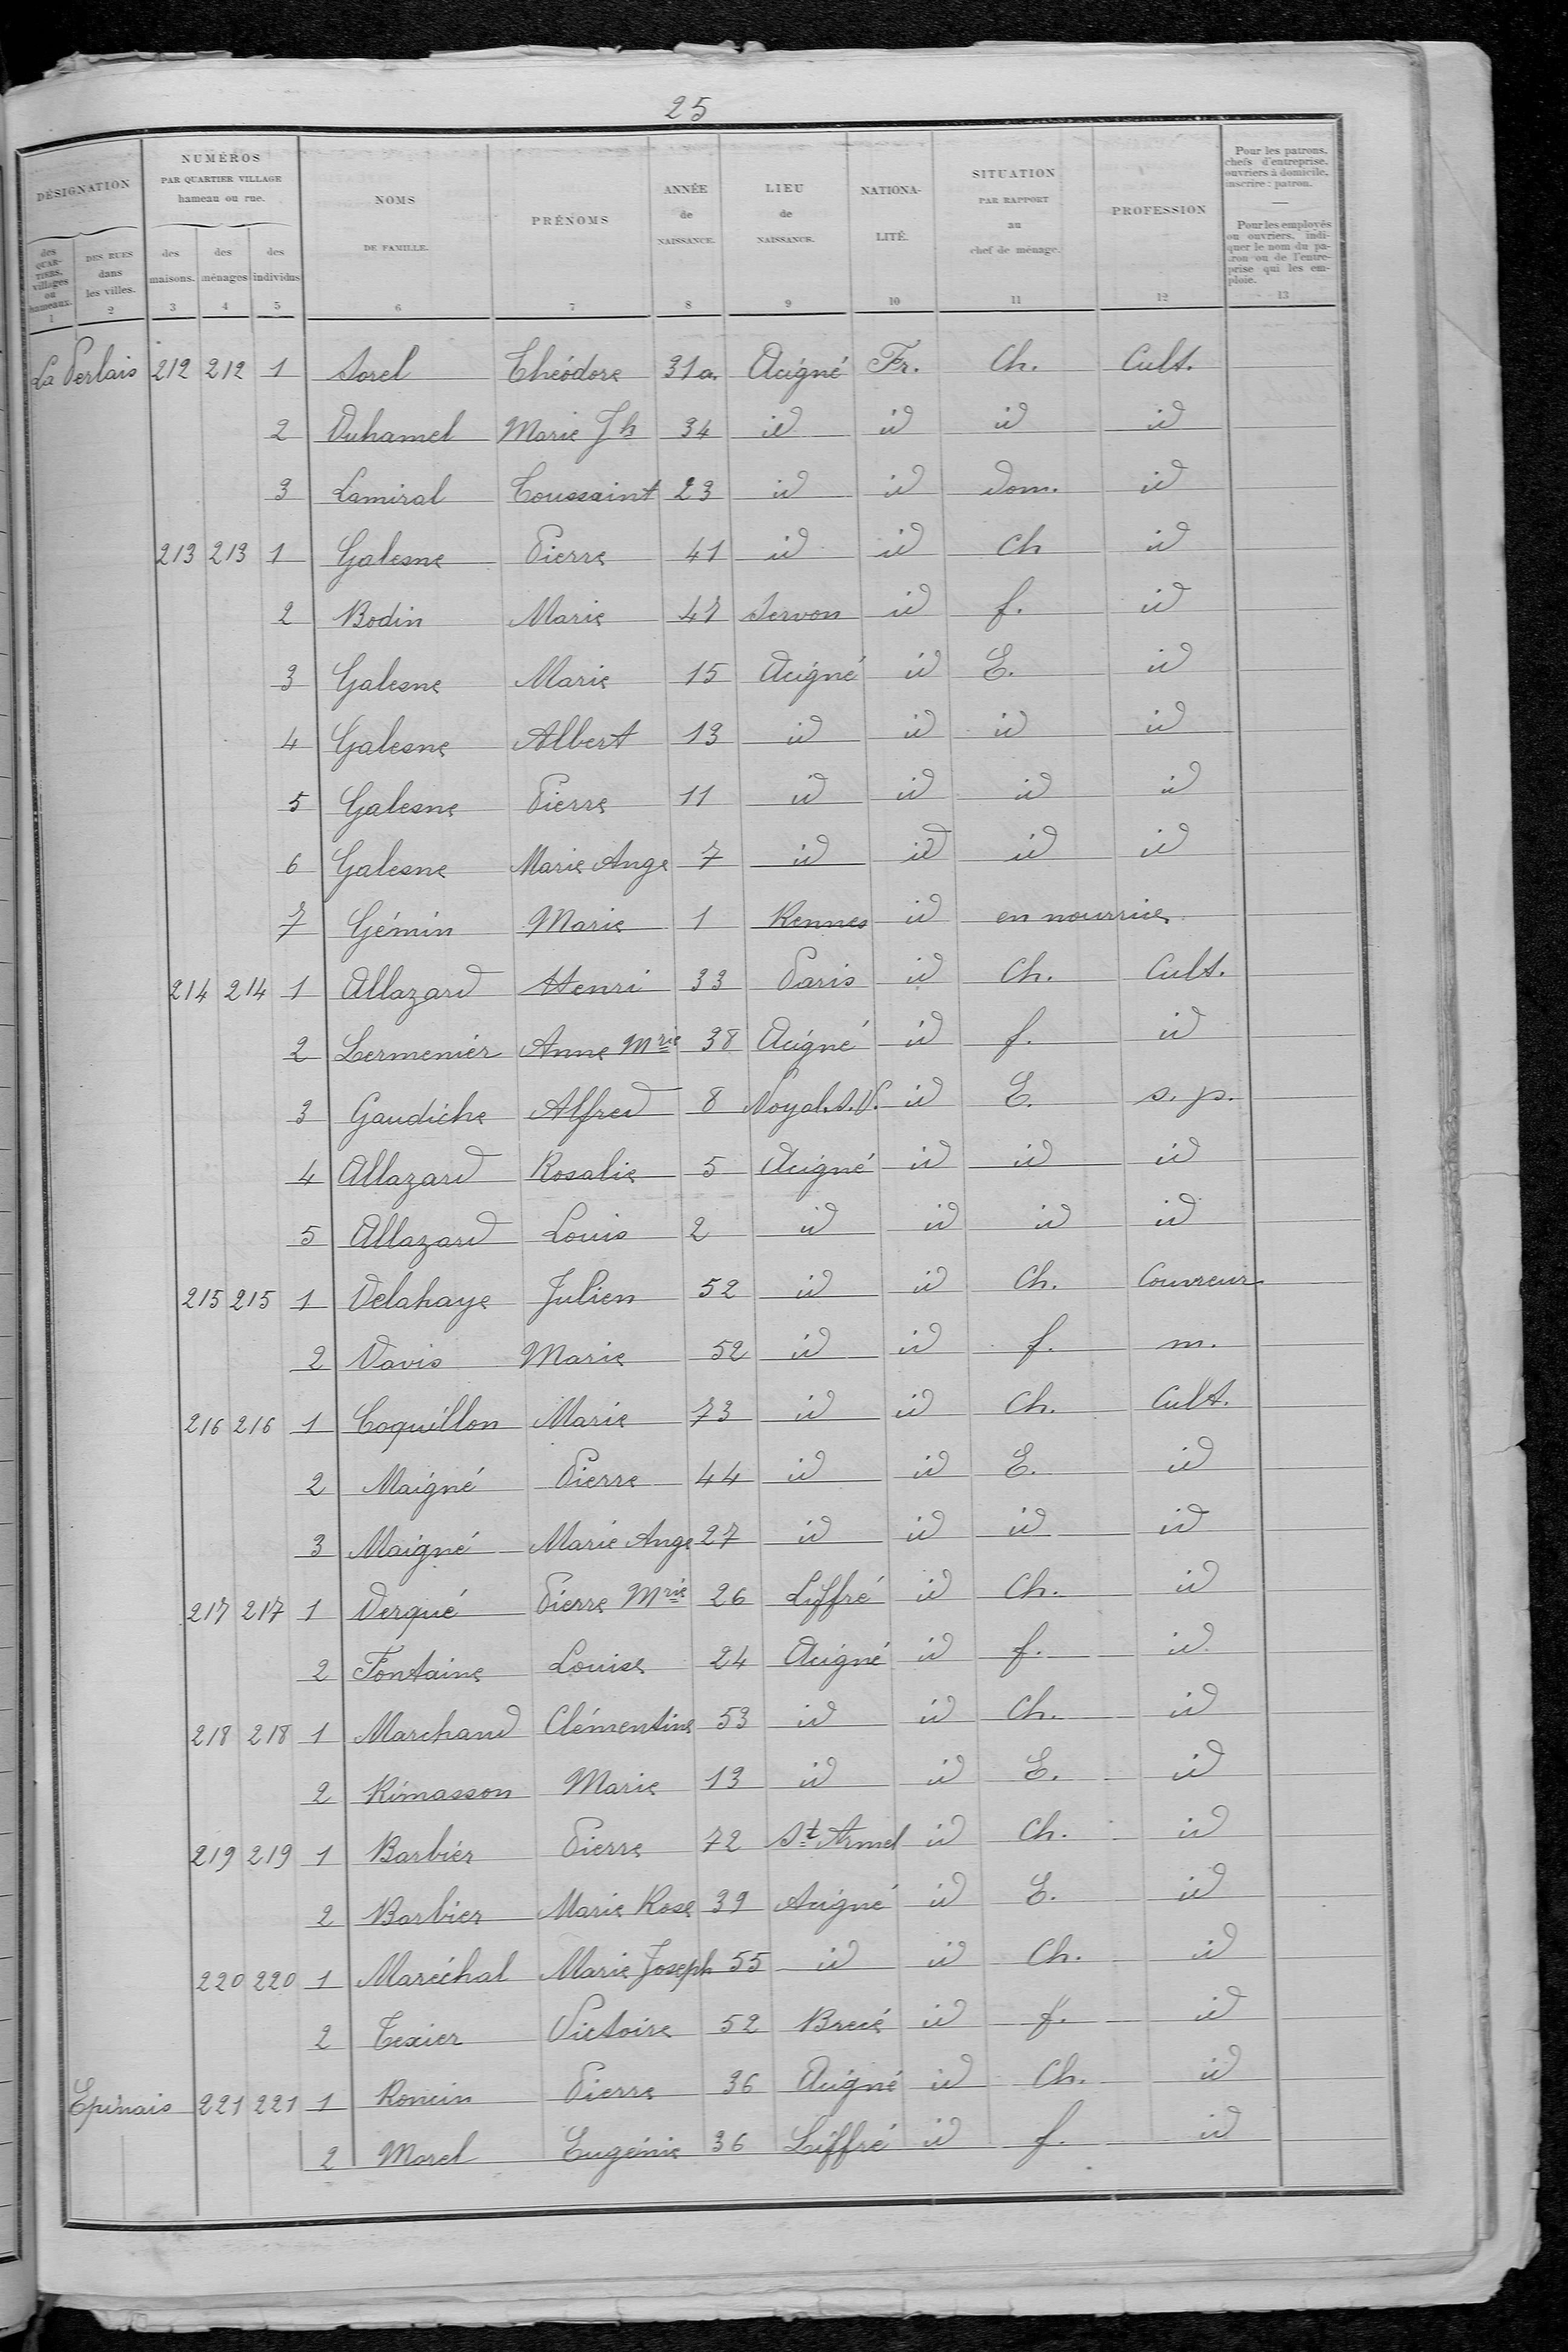 25
DÉSIGNATION
NUMÉROS PAR QUARTIER VILLAGE hameau ou rue.
NOMS DE FAMILLE.
PRÉNOMS
ANNÉE de NAISSANCE.
LIEU de NAISSANCE.
NATIONA-LITÉ.
SITUATION PAR RAPPORT au chef de ménage.
PROFESSION
Pour les patrons, chefs d'entreprise, ouvriers à domicile, inscrire : patron.
—
Pour les employés ou ouvriers, indiquer le nom du patron ou de l'entreprise qui les emploie.
des QUARTIERS, villages ou hameaux.
DES RUES dans les villes.
des maisons.
des ménages
des individus
1 2 3 4 5 6 7 8 9 10 11 12 13
La Perlais 212 212 1 Sorel Théodore 31 a. Acigné Fr. Ch. Cult.
2 Duhamel Marie Jh 34 id id id id
3 Lamiral Toussaint 23 id id dom. id
213 213 1 Galesne Pierre 41 id id Ch id
2 Bodin Marie 47 Servon id f. id
3 Galesne Marie 15 Acigné id E. id
4 Galesne Albert 13 id id id id
5 Galesne Pierre 11 id id id id
6 Galesne Marie Ange 7 id id id id
7 Gémin Marie 1 Rennes id en nourrice
214 214 1 Allazard Henri 33 Paris id Ch. Cult.
2 Lermenier Anne Mrie 38 Acigné id f. id
3 Gaudiche Alfred 8 Noyal.s.V. id E. s. p.
4 Allazard Rosalie 5 Acigné id id id
5 Allazard Louis 2 id id id id
215 215 1 Delahaye Julien 52 id id Ch. Couvreur
2 Davis Marie 52 id id f. m.
216 216 1 Coquillon Marie 73 id id Ch. Cult.
2 Maigné Pierre 44 id id E. id
3 Maigné Marie Ange 27 id id id id
217 217 1 Derqué Pierre Mrie 26 Liffré id Ch. id
2 Fontaine Louise 24 Acigné id f. id
218 218 1 Marchand Clémentine 53 id id Ch. id
2 Rimasson Marie 13 id id E. id
219 219 1 Barbier Pierre 72 St Armel id Ch. id
2 Barbier Marie Rose 39 Acigné id E. id
220 220 1 Maréchal Marie Joseph 55 id id Ch. id
2 Texier Victoire 52 Brecé id f. id
Epinais 221 221 1 Roncin Pierre 36 Acigné id Ch. id
2 Morel Eugénie 36 Liffré id f. id